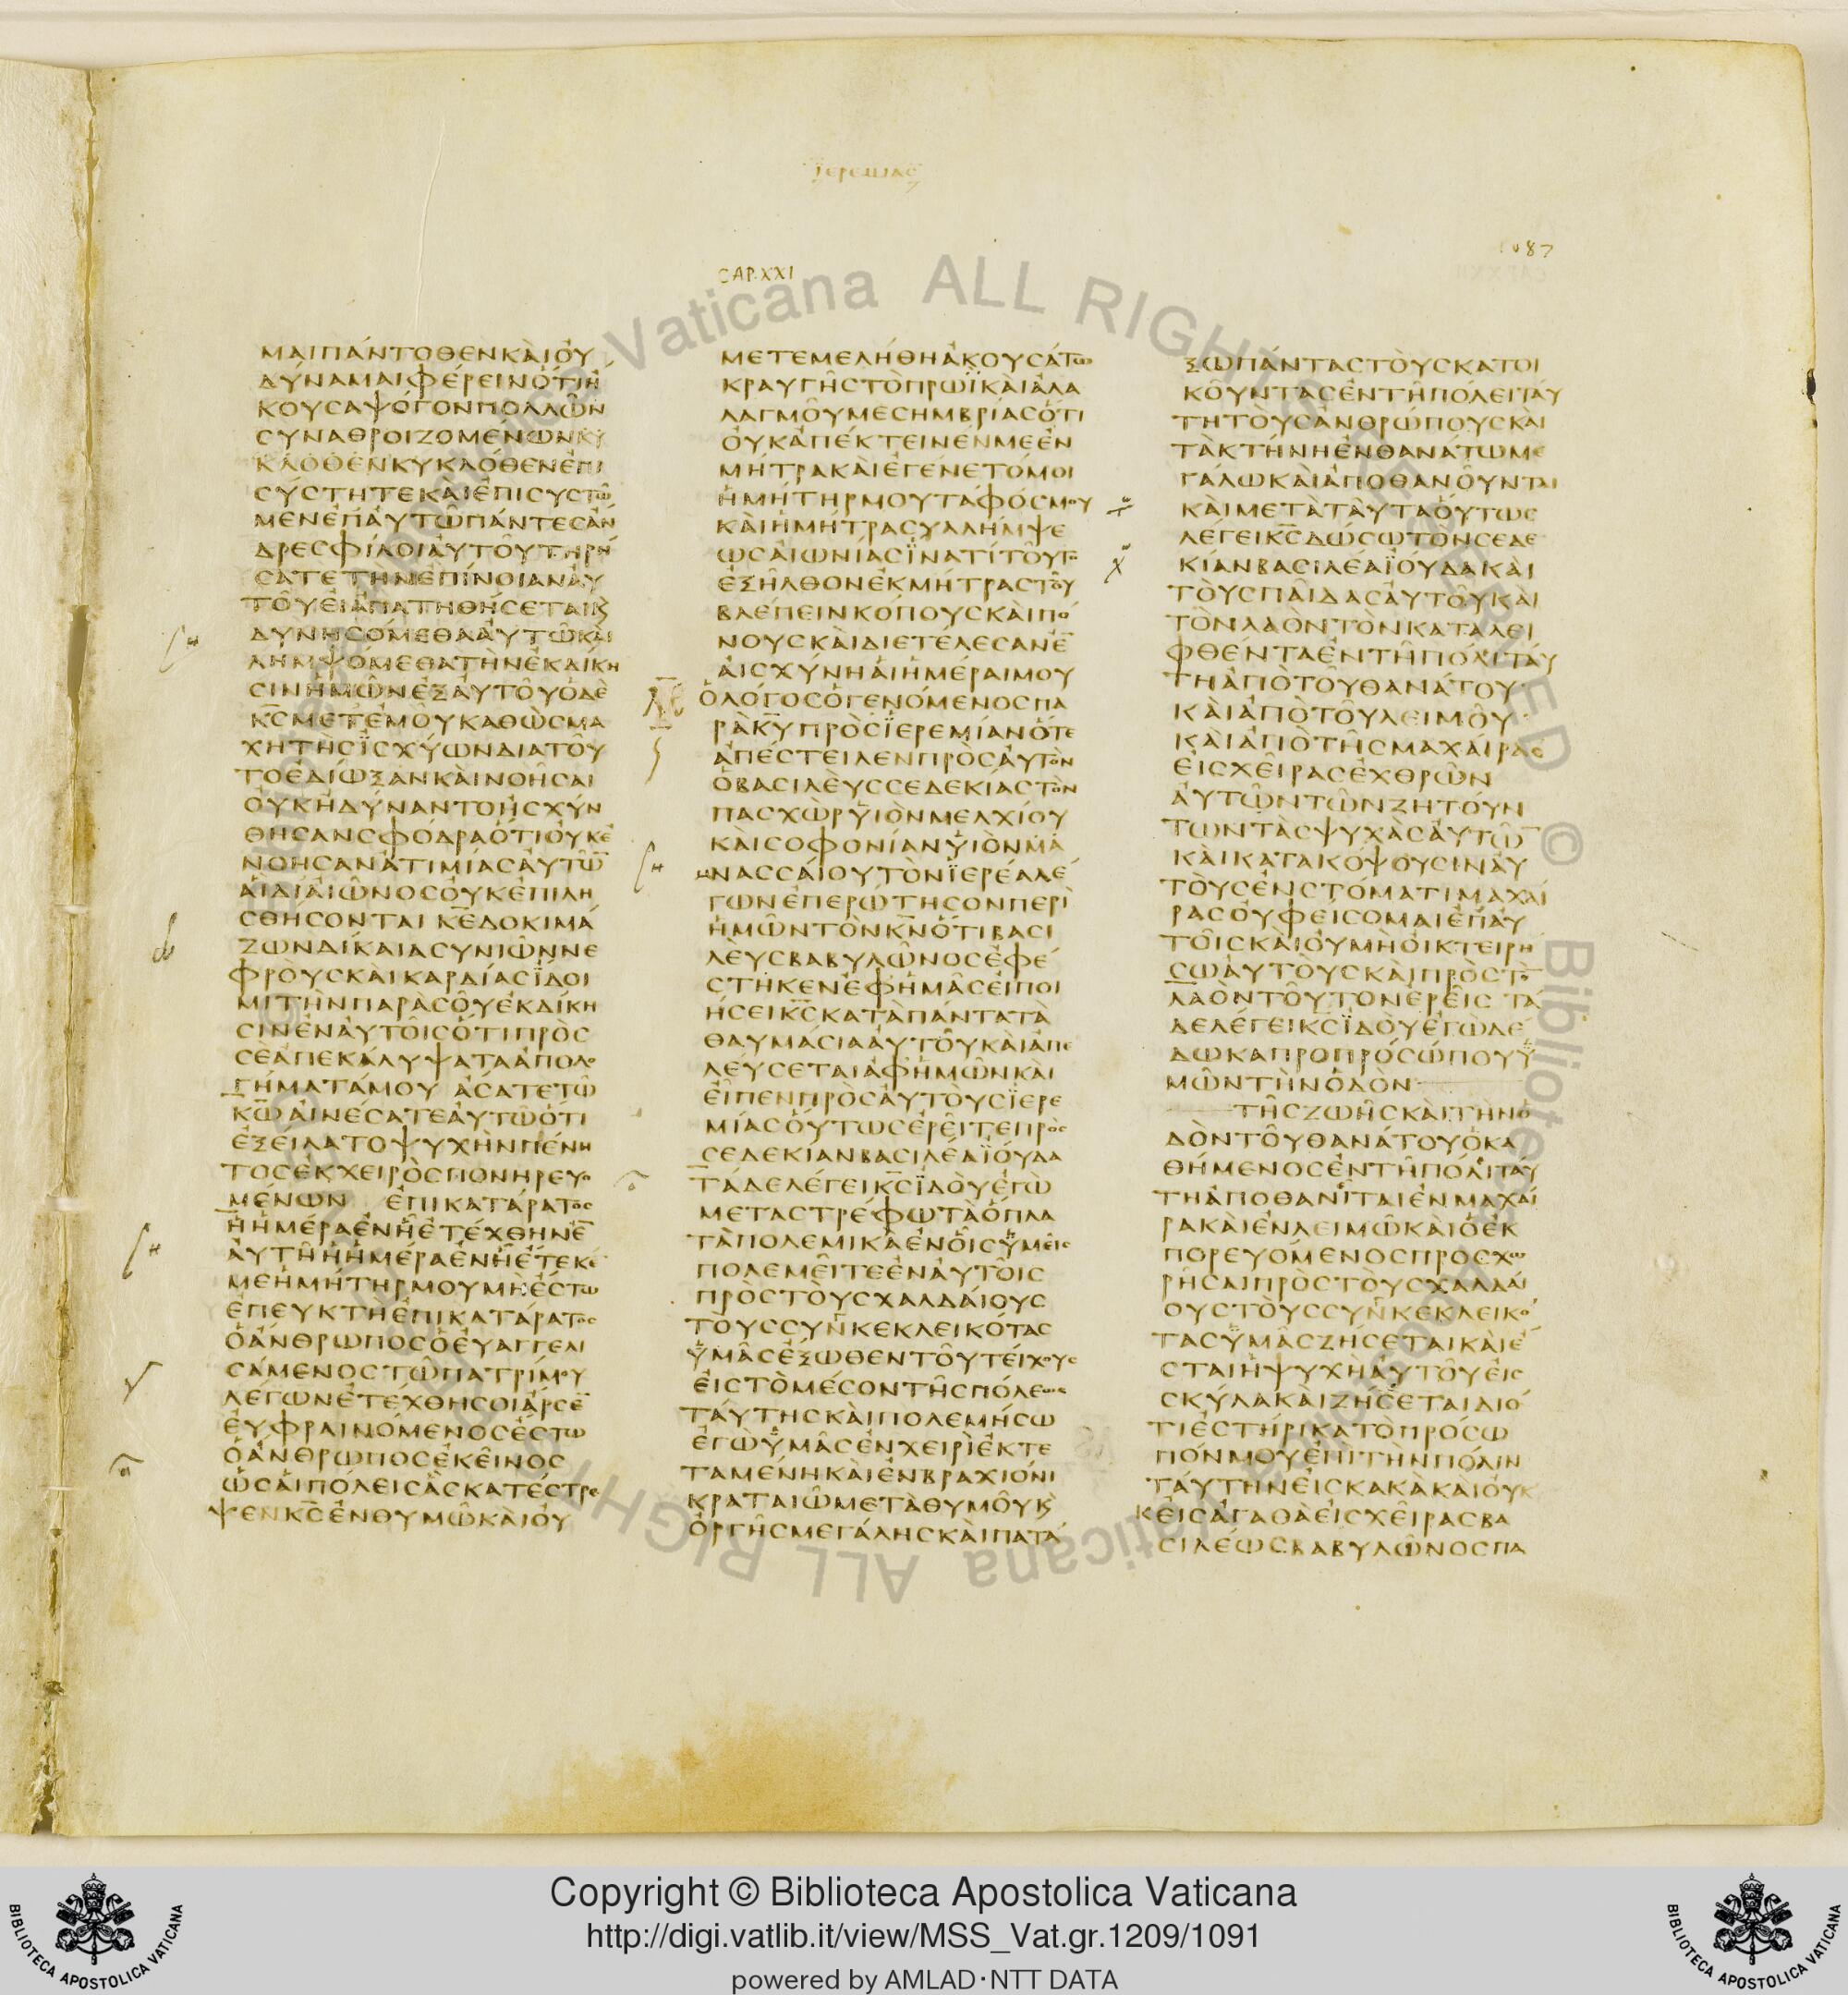 ϊερεμιας
1087
CAP.XXI
ΜΑΙΠΑΝΤΟΘΕΝΚΑΙΟΥ
ΔΥΝΑΜΑΙΦΕΡΕΙΝΟΤΙΗ
ΚΟΥCΑΨΟΓΟΝΠΟΛΛΩΝ
CΥΝΑΘΡΟΙΖΟΜΕΝΩΝΚΥ
ΚΛΟΘΕΝΚΥΚΛΟΘΕΝΕΠΙ
CΥCΤΗΤΕΚΑΙΕΠΙCΥCΤΩ
ΜΕΝΕΠΑΥΤΩΠΑΝΤΕCΑΝ
ΔΡΕCΦΙΛΟΙΑΥΤΟΥΤΗΡΗ
CΑΤΕΤΗΝΕΠΙΝΟΙΑΝΑΥ
ΤΟΥΕΙΑΠΑΤΗΘΗCΕΤΑΙΚ
ΔΥΝΗCΟΜΕΘΑΑΥΤΩΚΑΙ
ΛΗΜΨΟΜΕΘΑΤΗΝΕΚΔΙΚΗ
CΙΝΗΜΩΝΕΞΑΥΤΟΥΟΔΕ
Κ̅C̅ΜΕΤΕΜΟΥΚΑΘΩCΜΑ
ΧΗΤΗCΪCΧΥΩΝΔΙΑΤΟΥ
ΤΟΕΔΙΩΞΑΝΚΑΙΝΟΗCΑΙ
ΟΥΚΗΔΥΝΑΝΤΟΗCΧΥΝ
ΘΗCΑΝCΦΟΔΡΑΟΤΙΟΥΚΕ
ΝΟΗCΑΝΑΤΙΜΙΑCΑΥΤΩ̅
ΑΙΔΙΑΙΩΝΟCΟΥΚΕΠΙΛΗ
CΘΗCΟΝΤΑΙ Κ̅Ε̅ΔΟΚΙΜΑ
ΖΩΝΔΙΚΑΙΑCΥΝΙΩΝΝΕ
ΦΡΟΥCΚΑΙΚΑΡΔΙΑCΪΔΟΙ
ΜΙΤΗΝΠΑΡΑCΟΥΕΚΔΙΚΗ
CΙΝΕΝΑΥΤΟΙCΟΤΙΠΡΟC
CΕΑΠΕΚΑΛΥΨΑΤΑΑΠΟΛΟ
ΓΗΜΑΤΑΜΟΥ ΑCΑΤΕΤΩ
Κ̅Ω̅ΑΙΝΕCΑΤΕΑΥΤΩΟΤΙ
ΕΞΕΙΛΑΤΟΨΥΧΗΝΠΕΝΗ
ΤΟCΕΚΧΕΙΡΟCΠΟΝΗΡΕΥΟ
ΜΕΝΩΝ ΕΠΙΚΑΤΑΡΑΤΟC
ΗΗΜΕΡΑΕΝΗΕΤΕΧΘΗΝΕ̅
ΑΥΤΗΗΗΜΕΡΑΕΝΗΕΤΕΚΕ
ΜΕΗΜΗΤΗΡΜΟΥΜΗΕCΤΩ
ΕΠΕΥΚΤΗΕΠΙΚΑΤΑΡΑΤΟC
ΟΑΝΘΡΩΠΟCΟΕΥΑΓΓΕΛΙ
CΑΜΕΝΟCΤΩΠΑΤΡΙΜΟΥ
ΛΕΓΩΝΕΤΕΧΘΗCΟΙΑΡCΕ̅
ΕΥΦΡΑΙΝΟΜΕΝΟCΕCΤΩ
ΟΑΝΘΡΩΠΟCΕΚΕΙΝΟC
ΩCΑΙΠΟΛΕΙCΑCΚΑΤΕCΤΡΕ
ΨΕΝΚ̅C̅ΕΝΘΥΜΩΚΑΙΟΥ
ΜΕΤΕΜΕΛΗΘΗΑΚΟΥCΑΤΩ
ΚΡΑΥΓΗCΤΟΠΡΩΪΚΑΙΑΛΑ
ΛΑΓΜΟΥΜΕCΗΜΒΡΙΑCΟΤΙ
ΟΥΚΑΠΕΚΤΕΙΝΕΝΜΕΕΝ
ΜΗΤΡΑΚΑΙΕΓΕΝΕΤΟΜΟΙ
ΗΜΗΤΗΡΜΟΥΤΑΦΟCΜΟΥ
ΚΑΙΗΜΗΤΡΑCΥΛΛΗΜΨΕ
ΩCΑΙΩΝΙΑCΪΝΑΤΙΤΟΥΤΟ
ΕΞΗΛΘΟΝΕΚΜΗΤΡΑCΤΟΥ
ΒΛΕΠΕΙΝΚΟΠΟΥCΚΑΙΠΟ
ΝΟΥCΚΑΙΔΙΕΤΕΛΕCΑΝΕ̅
ΑΙCΧΥΝΗΑΙΗΜΕΡΑΙΜΟΥ
ΟΛΟΓΟCΟΓΕΝΟΜΕΝΟCΠΑ
ΡΑΚ̅Υ̅ΠΡΟCΪΕΡΕΜΙΑΝΟΤΕ
ΑΠΕCΤΕΙΛΕΝΠΡΟCΑΥΤΟΝ
ΟΒΑCΙΛΕΥCCΕΔΕΚΙΑCΤΟΝ
ΠΑCΧΩΡΥΙΟΝΜΕΛΧΙΟΥ
ΚΑΙCΟΦΟΝΙΑΝΥΙΟΝΜΑ
ΝΑCCΑΙΟΥΤΟΝΪΕΡΕΑΛΕ
ΓΩΝΕΠΕΡΩΤΗCΟΝΠΕΡΙ
ΗΜΩΝΤΟΝΚ̅Ν̅ΟΤΙΒΑCΙ
ΛΕΥCΒΑΒΥΛΩΝΟCΕΦΕ
CΤΗΚΕΝΕΦΗΜΑCΕΙΠΟΙ
ΗCΕΙΚ̅C̅ΚΑΤΑΠΑΝΤΑΤΑ
ΘΑΥΜΑCΙΑΑΥΤΟΥΚΑΙΑΠΕ
ΛΕΥCΕΤΑΙΑΦΗΜΩΝΚΑΙ
ΕΙΠΕΝΠΡΟCΑΥΤΟΥCΪΕΡΕ
ΜΙΑCΟΥΤΩCΕΡΕΙΤΕΠΡΟC
CΕΔΕΚΙΑΝΒΑCΙΛΕΑΪΟΥΔΑ
ΤΑΔΕΛΕΓΕΙΚ̅C̅ΪΔΟΥΕΓΩ
ΜΕΤΑCΤΡΕΦΩΤΑΟΠΛΑ
ΤΑΠΟΛΕΜΙΚΑΕΝΟΙCΥΜΕΙC
ΠΟΛΕΜΕΙΤΕΕΝΑΥΤΟΙC
ΠΡΟCΤΟΥCΧΑΛΔΑΙΟΥC
ΤΟΥCCΥΝΚΕΚΛΕΙΚΟΤΑC
ΥΜΑCΕΞΩΘΕΝΤΟΥΤΕΙΧΟΥC
ΕΙCΤΟΜΕCΟΝΤΗCΠΟΛΕΩC
ΤΑΥΤΗCΚΑΙΠΟΛΕΜΗCΩ
ΕΓΩΥΜΑCΕΝΧΕΙΡΙΕΚΤΕ
ΤΑΜΕΝΗΚΑΙΕΝΒΡΑΧΙΟΝΙ
ΚΡΑΤΑΙΩΜΕΤΑΘΥΜΟΥΚ
ΟΡΓΗCΜΕΓΑΛΗCΚΑΙΠΑΤΑ
ΞΩΠΑΝΤΑCΤΟΥCΚΑΤΟΙ
ΚΟΥΝΤΑCΕΝΤΗΠΟΛΕΙΤΑΥ
ΤΗΤΟΥCΑΝΘΡΩΠΟΥCΚΑΙ
ΤΑΚΤΗΝΗΕΝΘΑΝΑΤΩΜΕ
ΓΑΛΩΚΑΙΑΠΟΘΑΝΟΥΝΤΑΙ
ΚΑΙΜΕΤΑΤΑΥΤΑΟΥΤΩC
ΛΕΓΕΙΚ̅C̅ΔΩCΩΤΟΝCΕΔΕ
ΚΙΑΝΒΑCΙΛΕΑΪΟΥΔΑΚΑΙ
ΤΟΥCΠΑΙΔΑCΑΥΤΟΥΚΑΙ
ΤΟΝΛΑΟΝΤΟΝΚΑΤΑΛΕΙ
ΦΘΕΝΤΑΕΝΤΗΠΟΛΙΤΑΥ
ΤΗΑΠΟΤΟΥΘΑΝΑΤΟΥ
ΚΑΙΑΠΟΤΟΥΛΕΙΜΟΥ
ΚΑΙΑΠΟΤΗCΜΑΧΑΙΡΑC
ΕΙCΧΕΙΡΑCΕΧΘΡΩΝ
ΑΥΤΩΝΤΩΝΖΗΤΟΥΝ
ΤΩΝΤΑCΨΥΧΑCΑΥΤΩ̅
ΚΑΙΚΑΤΑΚΟΨΟΥCΙΝΑΥ
ΤΟΥCΕΝCΤΟΜΑΤΙΜΑΧΑΙ
ΡΑCΟΥΦΕΙCΟΜΑΙΕΠΑΥ
ΤΟΙCΚΑΙΟΥΜΗΟΙΚΤΕΙΡΗ
CΩΑΥΤΟΥCΚΑΙΠΡΟCΤΟ̅
ΛΑΟΝΤΟΥΤΟΝΕΡΕΙC ΤΑ
ΔΕΛΕΓΕΙΚ̅C̅ΪΔΟΥΕΓΩΔΕ
ΔΩΚΑΠΡΟΠΡΟCΩΠΟΥΥ
ΜΩΝΤΗΝΟΔΟΝ
ΤΗCΖΩΗCΚΑΙΤΗΝΟ
ΔΟΝΤΟΥΘΑΝΑΤΟΥΟΚΑ
ΘΗΜΕΝΟCΕΝΤΗΠΟΛΙΤΑΥ
ΤΗΑΠΟΘΑΝΙΤΑΙΕΝΜΑΧΑΙ
ΡΑΚΑΙΕΝΛΕΙΜΩΚΑΙΟΕΚ
ΠΟΡΕΥΟΜΕΝΟCΠΡΟCΧΩ
ΡΗCΑΙΠΡΟCΤΟΥCΧΑΛΔΑΙ
ΟΥCΤΟΥCCΥΝΚΕΚΛΕΙΚΟ
ΤΑCΥΜΑCΖΗCΕΤΑΙΚΑΙΕ
CΤΑΙΗΨΥΧΗΑΥΤΟΥΕΙC
CΚΥΛΑΚΑΙΖΗCΕΤΑΙΔΙΟ
ΤΙΕCΤΗΡΙΚΑΤΟΠΡΟCΩ
ΠΟΝΜΟΥΕΠΙΤΗΝΠΟΛΙΝ
ΤΑΥΤΗΝΕΙCΚΑΚΑΚΑΙΟΥΚ
ΕΙCΑΓΑΘΑΕΙCΧΕΙΡΑCΒΑ
CΙΛΕΩCΒΑΒΥΛΩΝΟCΠΑ
Copyright © Biblioteca Apostolica Vaticana
http://digi.vatlib.it/view/MSS_Vat.gr.1209/1091
powered by AMLAD·NTT DATA
BIBLIOTECA APOSTOLICA VATICANA
BIBLIOTECA APOSTOLICA VATICANA